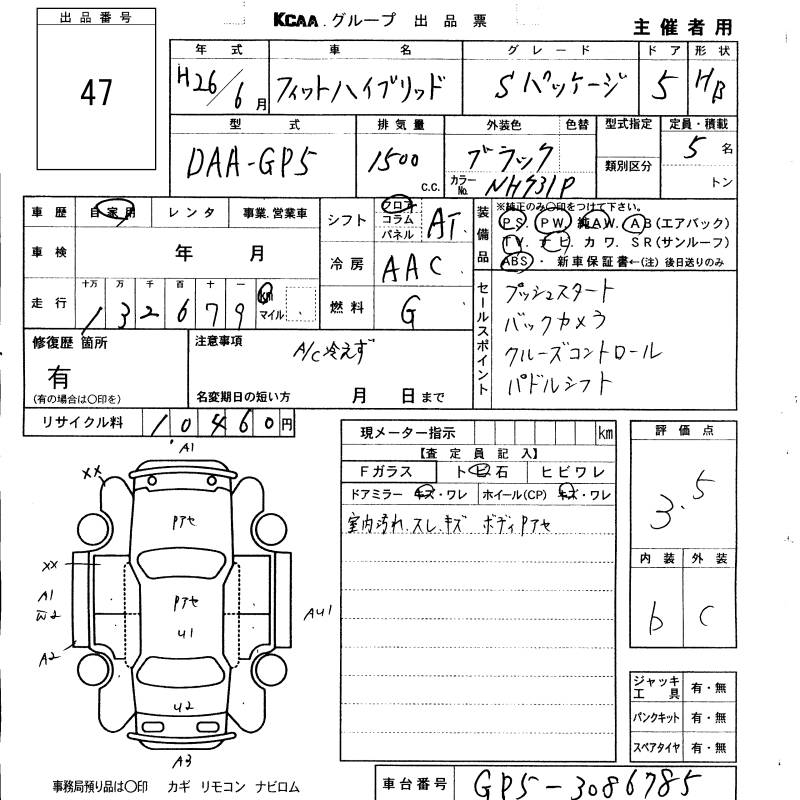 KCAA.グループ 出品票
主催者用
出品番号
47
年式 車名 グレード ドア 形状
H26/6月 フィットハイブリッド Sパッケージ 5 HB
型式 排気量 外装色 色替 型式指定 定員・積載
DAA-GP5 1500 C.C. ブラック 類別区分 5名
カラーNo. NH731P トン
車歴 自家用 レンタ 事業.営業車
シフト フロア コラム パネル AT
装備品 ※純正のみ○印をつけて下さい。
PS. PW. 純AW. AB(エアバック)
TV. ナビ. カワ. SR(サンルーフ)
ABS・ 新車保証書←(注) 後日送りのみ
車検 年 月
冷房 AAC
走行 十万 万 千 百 十 一
132679 km マイル
燃料 G
セールスポイント
プッシュスタート
バックカメラ
クルーズコントロール
パドルシフト
修復歴 箇所
有
(有の場合は○印を)
注意事項
A/C冷えず
名変期日の短い方 月 日まで
リサイクル料 10460円
現メーター指示 km
【査定員記入】
Fガラス トビ石 ヒビワレ
ドアミラー キズ・ワレ ホイール(CP) キズ・ワレ
室内汚れ.スレ.キズ ボディPアセ
評価点
3.5
内装 外装
b C
A1
XX
Pアセ
XX
Pアセ
A1
W2
U1
AU1
A2
U2
A3
ジャッキ工具 有・無
パンクキット 有・無
スペアタイヤ 有・無
事務局預り品は○印 カギ リモコン ナビロム
車台番号 GP5-3086785